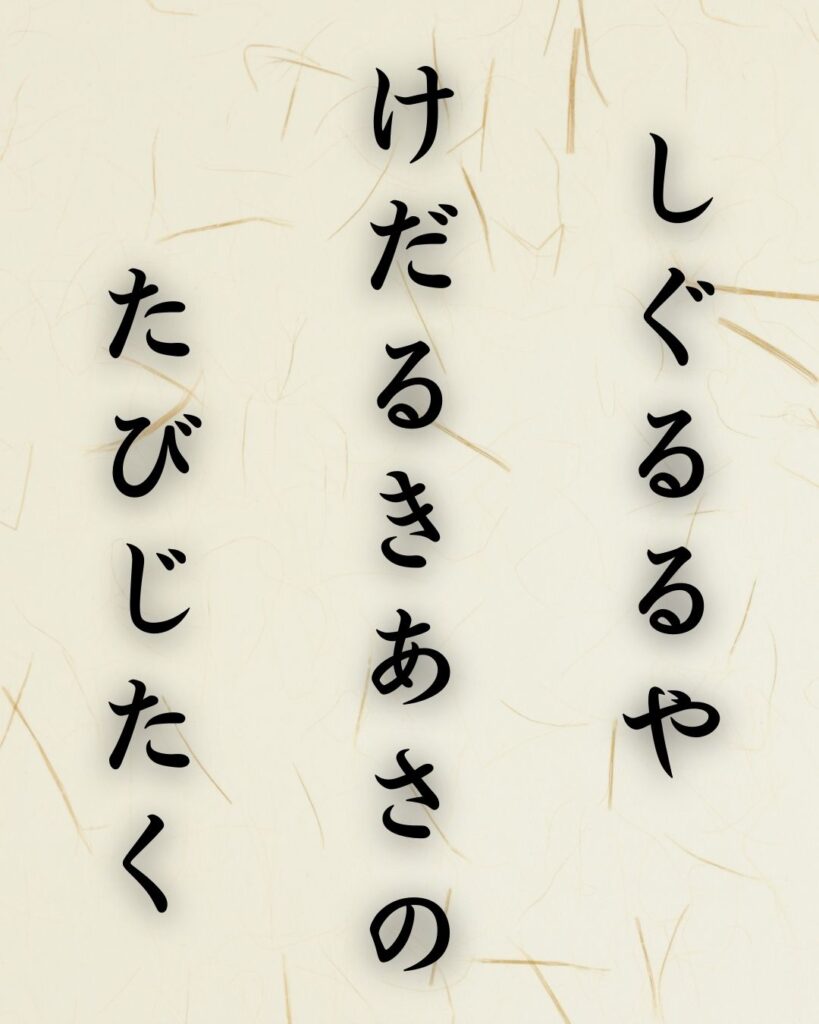 しぐるるや
けだるきあさの
たびじたく